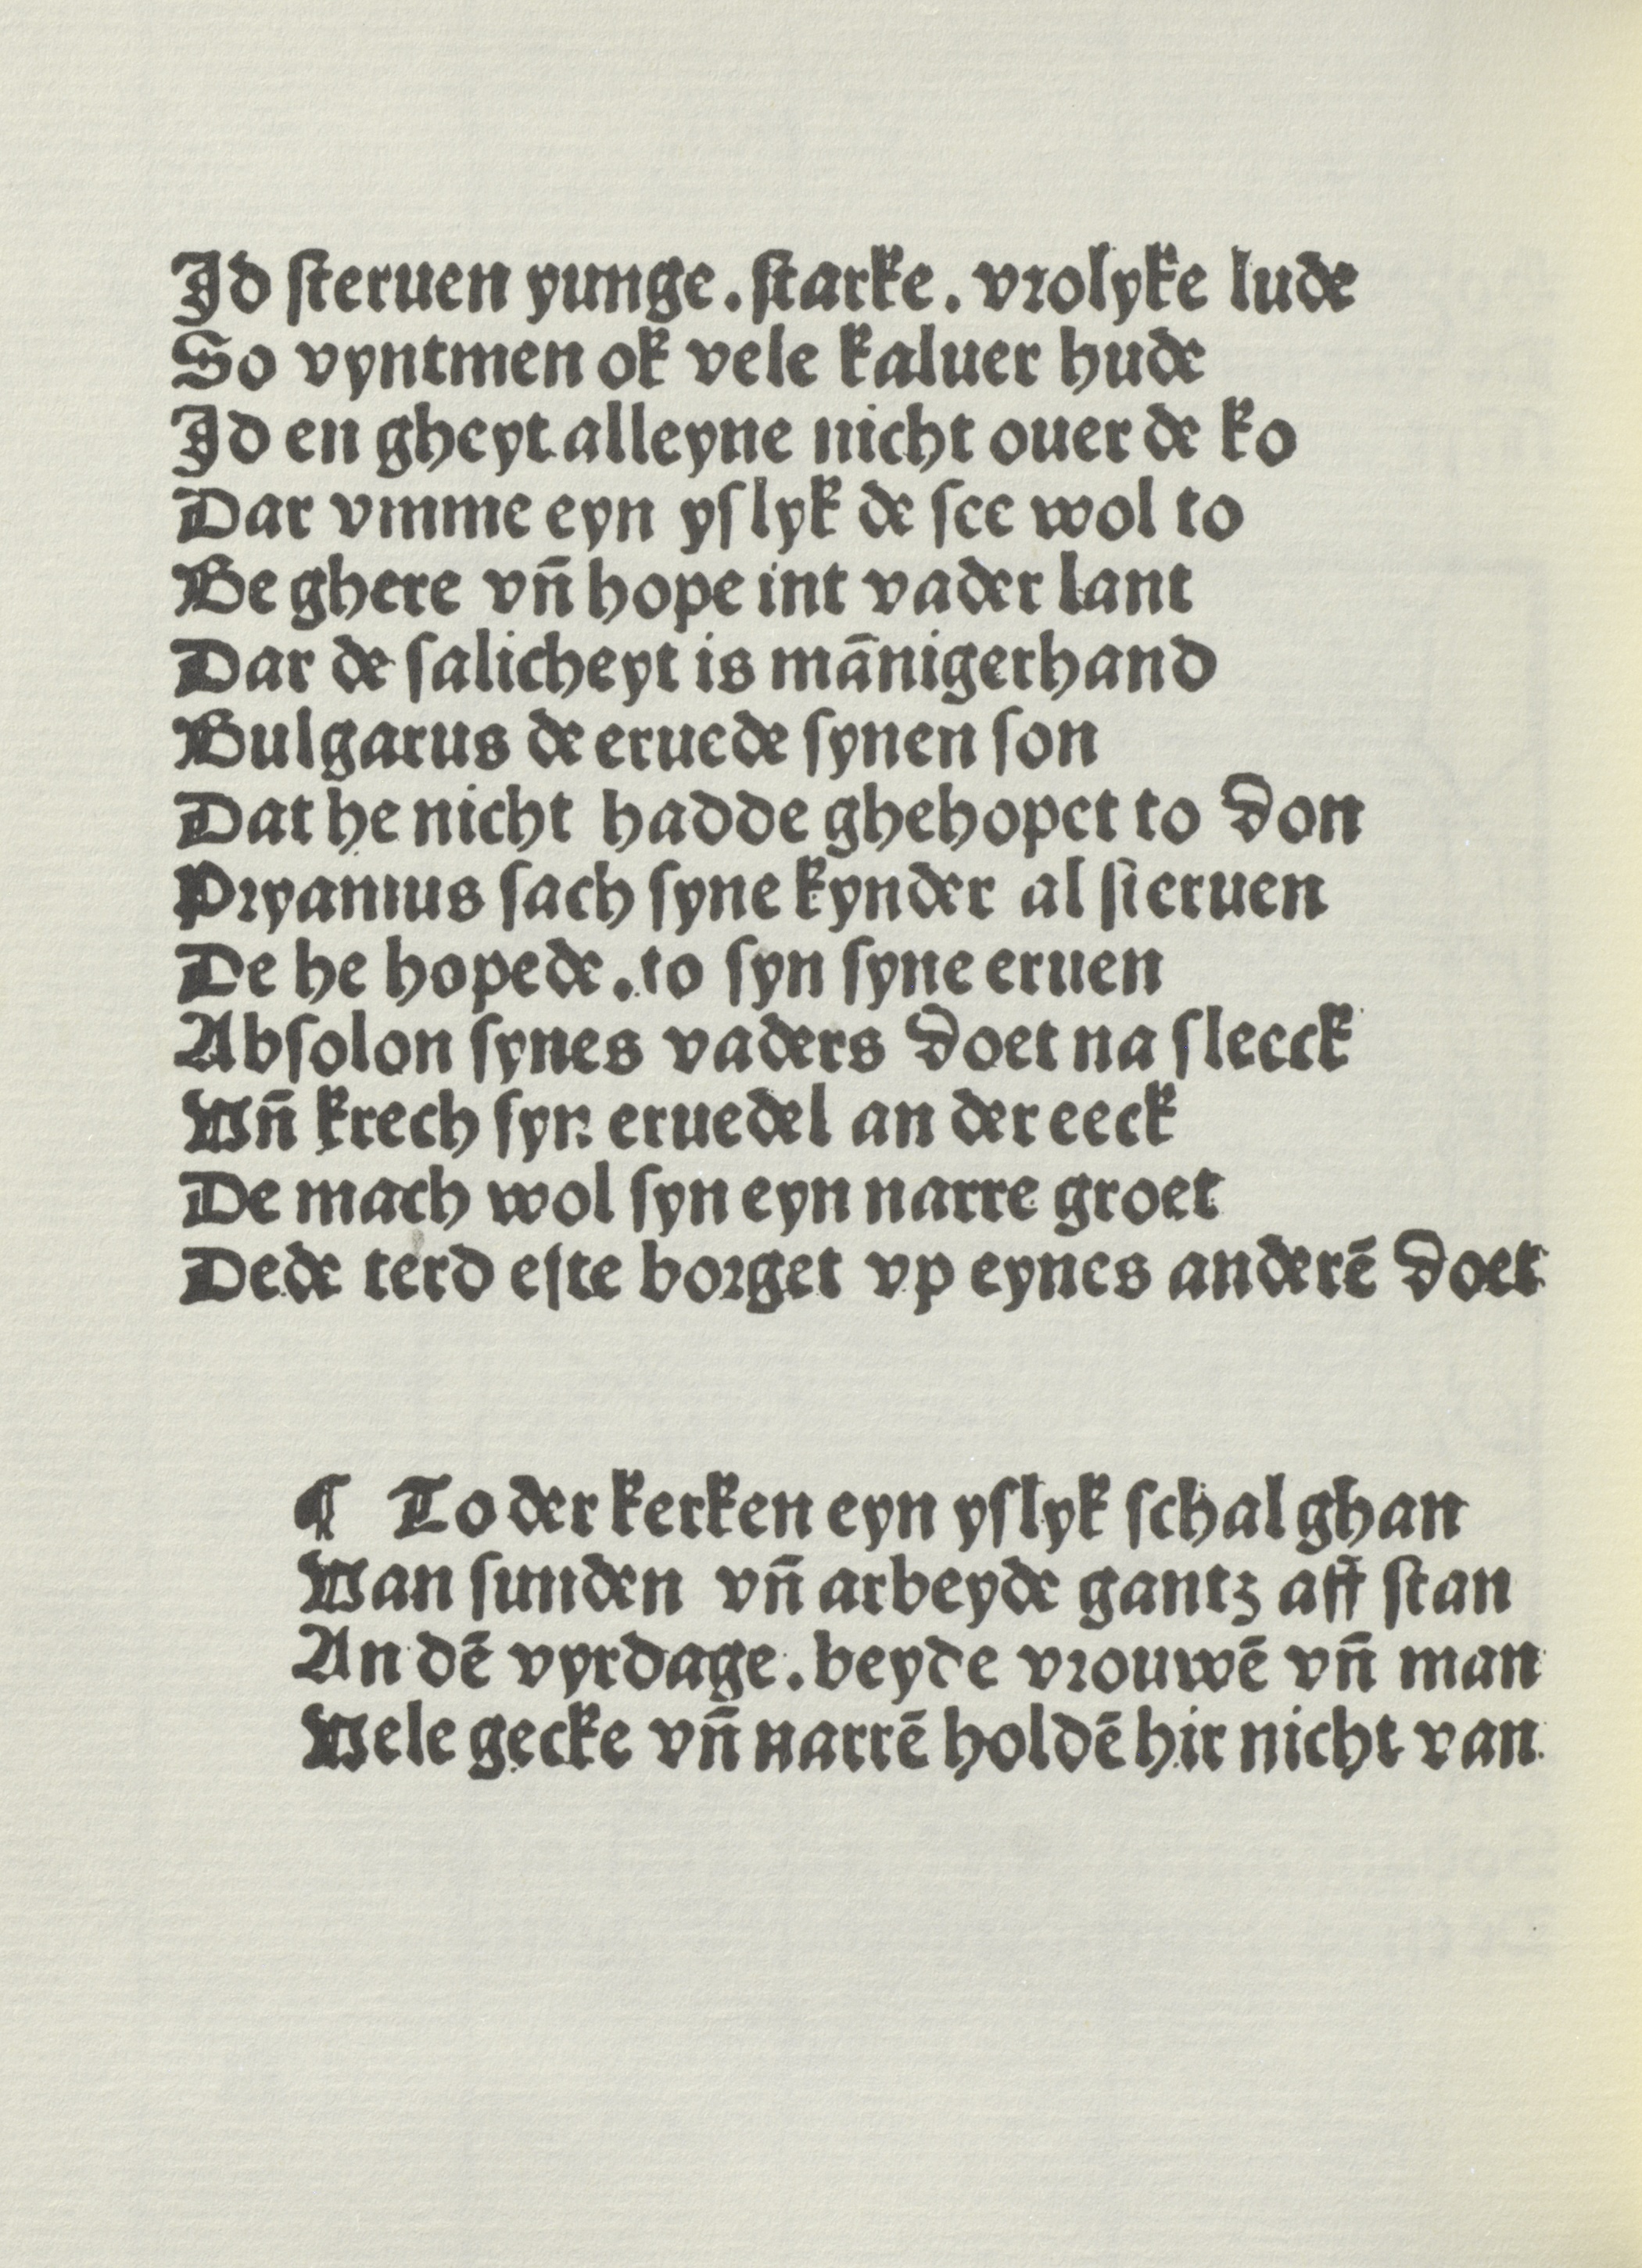 Jd ſteruen yunge. ſtarke. vꝛolyke lude
So vyntmen ok vele kaluer hude
Jd en gheyt alleyne nicht ouer de ko
Dar vmme eyn yſlyk de ſee wol to
Be ghere vn̄ hope int vader lant
Dar de ſalicheyt is mānigerhand
Bulgarus de eruede ſynen ſon
Dat he nicht hadde ghehopet to don
Pꝛyamus ſach ſyne kynder al ſteruen
De he hopede. to ſyn ſyne eruen
Abſolon ſynes vaders doet na ſleeck
Vn̄ krech ſyn eruedel an der eeck
De mach wol ſyn eyn narre groet
Dede terd efte boꝛget vp eynes anderē doet
¶ To der kerken eyn yſlyk ſchal ghan
Van ſunden vn̄ arbeyde gantz aff ſtan
An dē vyrdage. beyde vꝛouwē vn̄ man
Vele gecke vn̄ narrē holdē hir nicht van